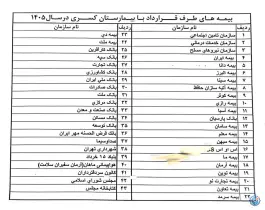 بیمه های طرف قرارداد با بیمارستان کسری درسال ۱۴۰۵
ردیف نام سازمان ردیف نام سازمان
۱ سازمان تامین اجتماعی ۲۳ بیمه دی
۲ سازمان خدمات درمانی ۲۴ بیمه ملت
۳ سازمان نیروهای مسلح ۲۵ بانک کارآفرین
۴ بیمه ایران ۲۶ بانک سپه
۵ بیمه دانا ۲۷ بانک تجارت
۶ بیمه البرز ۲۸ بانک کشاورزی
۷ بیمه آسیا ۲۹ بانک ملی ایران
۸ بیمه آتیه سازان حافظ ۳۰ بانک صادرات
۹ بیمه کوثر ۳۱ بانک ملت
۱۰ بیمه رازی ۳۲ بانک مرکزی
۱۱ بیمه سینا ۳۳ بانک مسکن
۱۲ بانک پارسیان ۳۴ بانک صنعت و معدن
۱۳ بیمه سامان ۳۵ بانک توسعه
۱۴ بیمه معلم ۳۶ بانک قرض الحسنه مهر ایران
۱۵ بیمه میهن ۳۷ صداوسیما
۱۶ اس او اس ۳۸ شهرداری تهران
۱۷ بیمه ما ۳۹ بنیاد ۱۵ خرداد
۱۸ بیمه آرمان ۴۰ هواپیمائی ماهان(آرمان سفیران سلامت)
۱۹ بیمه نوین ۴۱ کانون سردفترداران
۲۰ بیمه تجارت نو ۴۲ مجلس شورای اسلامی
۲۱ بیمه تعاون ۴۳ کتابخانه مجلس
۲۲ بیمه سرمد